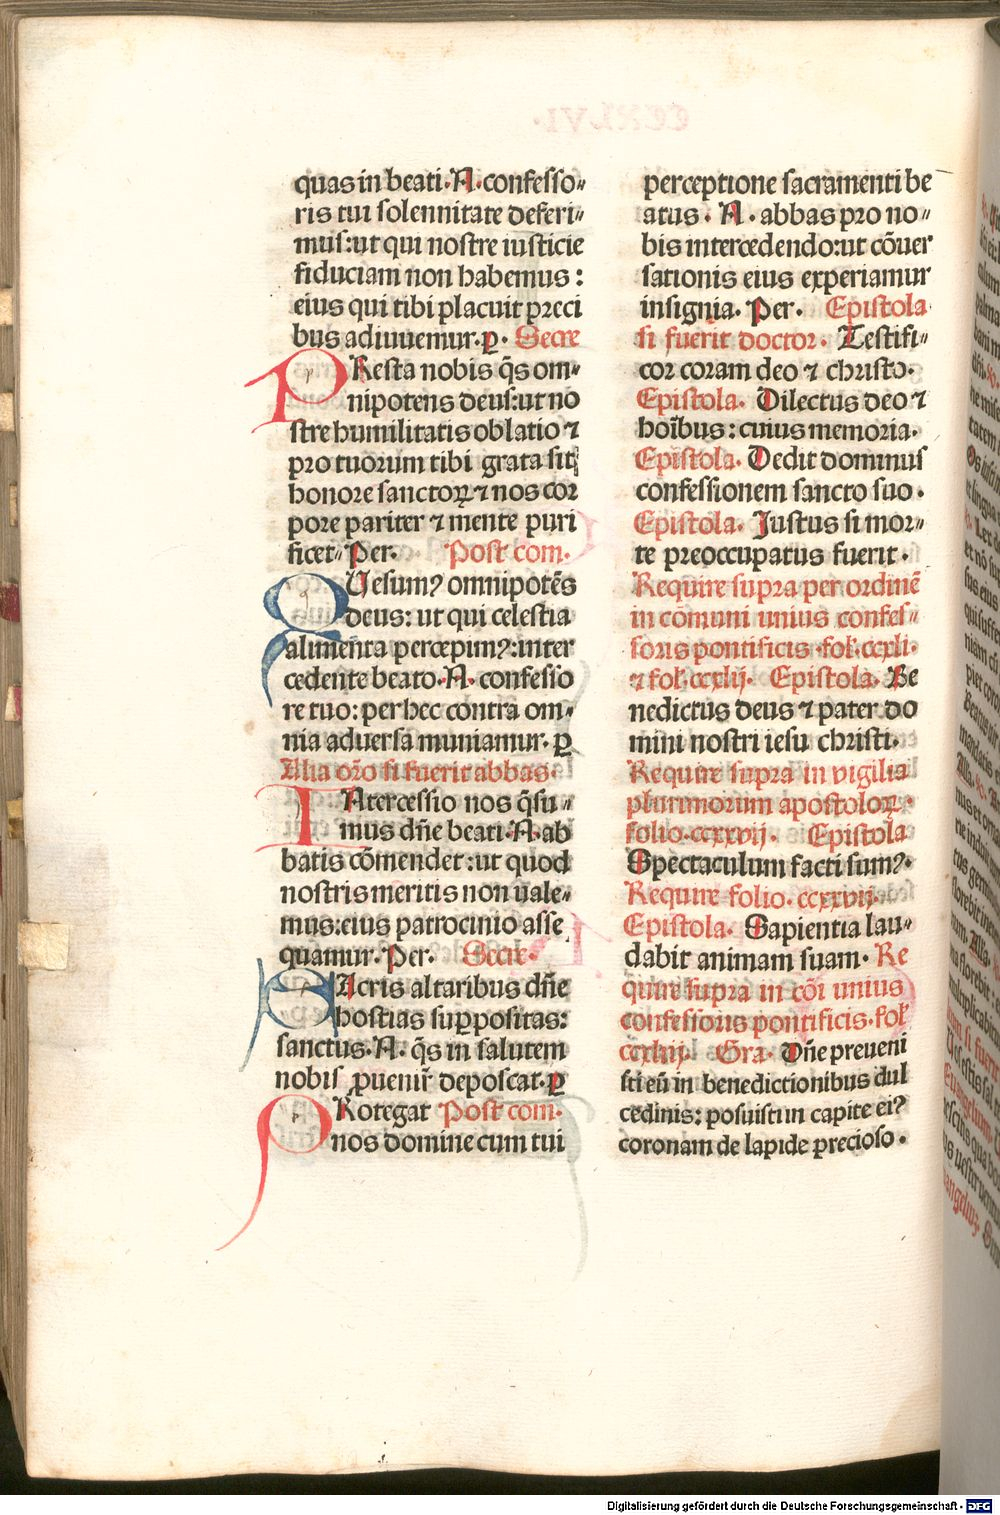 quas in beati·N·confesso〃
ris tui solennitate deferi〃
mus:ut qui nostre iusticie
fiduciam non habemus:
eius qui tibi placuit preci
bus adiuuemur.ꝑ· Secre
PResta nobis q̃s om〃
nipotens deus:ut no
stre humilitatis oblatio ⁊
pro tuorum tibi grata sit
honore sanctoꝝ ⁊ nos cor
pore pariter ⁊ mente puri
ficet〃 Per. Post com.
QUesumꝰ omnipotẽs
deus: ut qui celestia
alimenta percepimꝰ:inter
cedente beato·N·confesso
re tuo: per hec contra om〃
nia aduersa muniamur.ꝑ
Alia or̃o si fuerit abbas·
INtercessio nos q̃su〃
mus dñe beati·N·ab
batis cõmendet:ut quod
nostris meritis non uale〃
mus:eius patrocinio asse
quamur. Per. Secre·
SAcris altaribus dñe
hostias suꝑpositas:
sanctus·N·q̃s in salutem
nobis ꝓuenir̃ deposcat·ꝑ
PRotegat Post com.
nos domine cum tui
perceptione sacramenti be
atus·N·abbas pro no〃
bis intercedendo:ut cõuer
sationis eius experiamur
insignia. Per. Epistola
si fuerit doctor. Testifi〃
cor coram deo ⁊ christo.
Epistola. Dilectus deo ⁊
hoĩbus: cuius memoria.
Epistola. Dedit dominus
confessionem sancto suo.
Epistola. Justus si mor〃
te preoccupatus fuerit.
Require supra per ordinẽ
in cõmuni unius confes〃
soris pontificis·fol·ccxli·
⁊ fol·ccxlij· Epistola. Be
nedictus deus ⁊ pater do
mini nostri iesu christi.
Require supra in vigilia
plurimorum apostoloꝝ·
folio·ccxxvij· Epistola
Spectaculum facti sumꝰ·
Require folio·ccxxvij.
Epistola. Sapientia lau〃
dabit animam suam. Re
quire supra in cõi unius
confessoris pontificis·fol
ccxliij· Gra. Dñe preueni
sti eũ in benedictionibus dul
cedinis: posuisti in capite eiꝰ
coronam de lapide precioso.
Digitalisierung gefördert durch die Deutsche Forschungsgemeinschaft - DFG